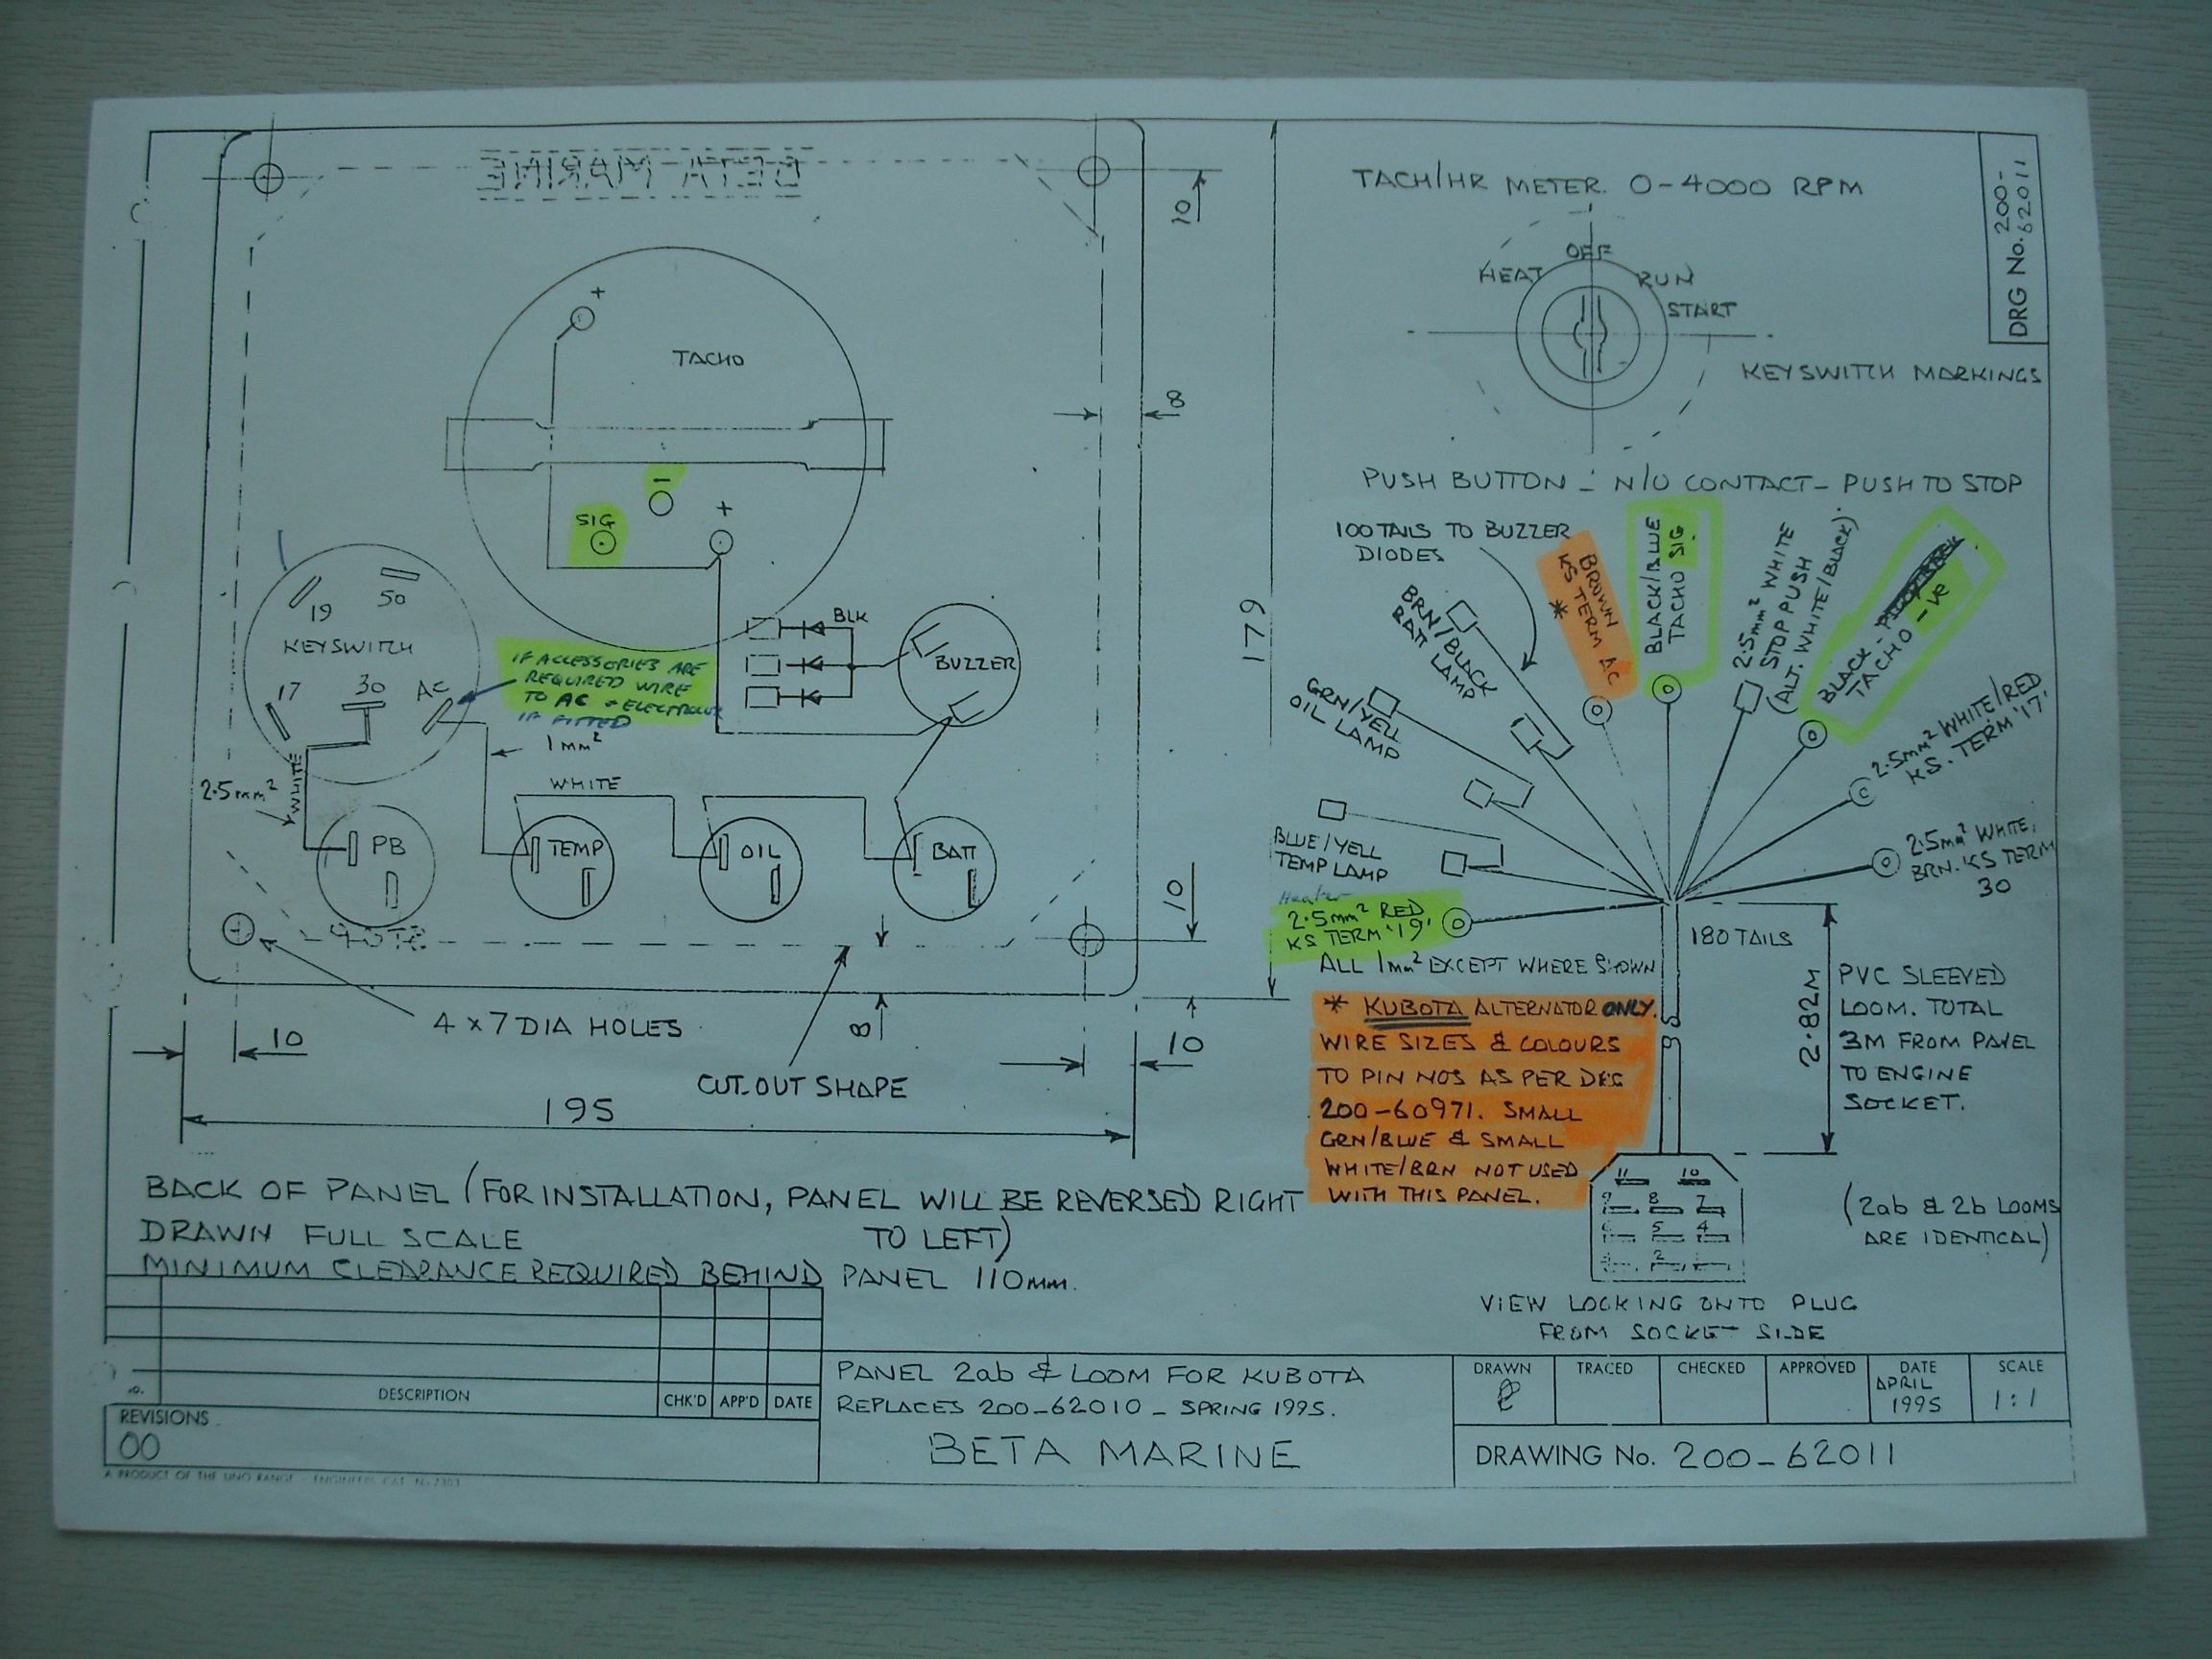 BETA MARINE
TACH/HR METER. 0-4000 RPM
DRG No. 200-
62011
OFF
HEAT
RUN
START
KEYSWITCH MARKINGS
10
+
TACHO
8
-
SIG
+
PUSH BUTTON - N/O CONTACT - PUSH TO STOP
100 TAILS TO BUZZER
DIODES
BRN/BLACK
BATT LAMP
BROWN
KS TERM AC
*
BLACK/BLUE
TACHO SIG.
2.5mm² WHITE
STOP PUSH
(ALT. WHITE/BLACK).
BLACK -
TACHO -ve
GRN/YELL
OIL LAMP
2.5mm² WHITE/RED
KS. TERM '17'.
BLUE/YELL
TEMP LAMP
2.5mm² WHITE.
BRN. KS TERM
30
Heater
2.5mm² RED
KS TERM '19'
ALL 1mm² EXCEPT WHERE SHOWN
180 TAILS
179
19
50
KEYSWITCH
17
30
AC
IF ACCESSORIES ARE
REQUIRED WIRE
TO AC
IF FITTED
BLK
BUZZER
1mm²
2.5mm²
WHITE
WHITE
PB
TEMP
OIL
BATT
10
4 x 7 DIA HOLES
8
10
10
CUT-OUT SHAPE
195
* KUBOTA ALTERNATOR ONLY.
WIRE SIZES & COLOURS
TO PIN NOS AS PER DRG
200-60971. SMALL
GRN/BLUE & SMALL
WHITE/BRN NOT USED
WITH THIS PANEL.
2.82M
PVC SLEEVED
LOOM. TOTAL
3M FROM PANEL
TO ENGINE
SOCKET.
11 10
9 8 7
6 5 4
2
(2ab & 2b LOOMS
ARE IDENTICAL)
VIEW LOOKING ONTO PLUG
FROM SOCKET SIDE
BACK OF PANEL (FOR INSTALLATION, PANEL WILL BE REVERSED RIGHT
TO LEFT)
DRAWN FULL SCALE
MINIMUM CLEARANCE REQUIRED BEHIND PANEL 110mm.
DESCRIPTION
CHK'D
APP'D
DATE
REVISIONS
00
PANEL 2ab & LOOM FOR KUBOTA
REPLACES 200-62010 - SPRING 1995.
BETA MARINE
DRAWN
TRACED
CHECKED
APPROVED
DATE
APRIL
1995
SCALE
1:1
DRAWING No. 200-62011
A PRODUCT OF THE UNO RANGE - ENGINEERS CAT. No 7303